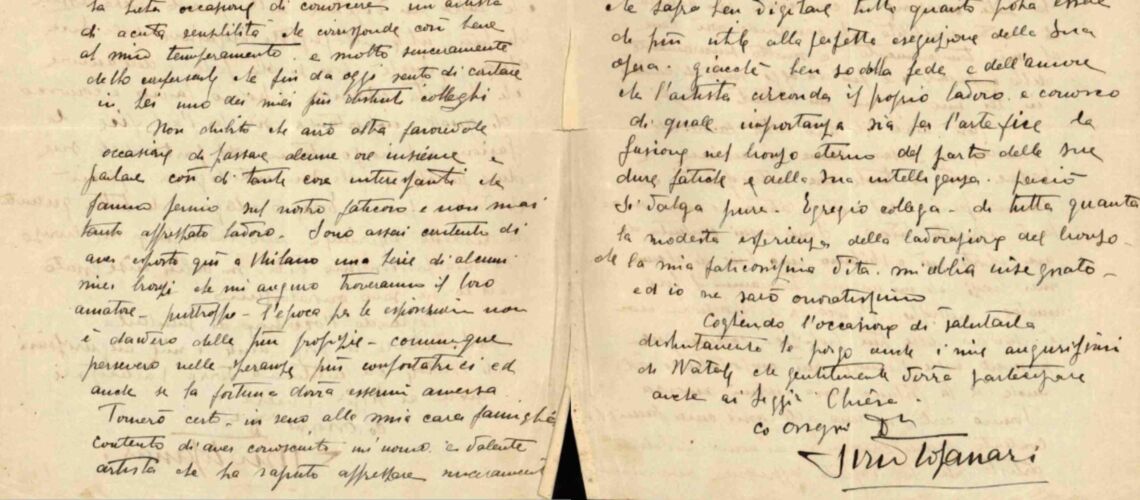 la lieta occasione di conoscere un artista
di acuta sensibilità che corrisponde così bene
al mio temperamento. e molto sinceramente
debbo confessarle che fin da oggi sento di contare
in Lei uno dei miei più distinti colleghi
Non dubito che avrò altra favorevole
occasione di passare alcune ore insieme e
parlare così di tante cose interessanti che
fanno pernio sul nostro faticoso e non mai
tanto apprezzato lavoro. Sono assai contento di
aver esposto quì a Milano una serie di alcuni
miei bronzi che mi auguro troveranno il loro
amatore - purtroppo - l'epoca per le esposizioni non
è davvero delle più propizie - comunque
persevero nelle speranze più confortatrici ed
anche se la fortuna dovrà essermi avversa
Tornerò certo in seno alla mia cara famiglia
contento d'aver conosciuto un uomo e valente
artista che ha saputo apprezzare sinceramente
che saprà ben digitare tutto quanto possa essere
di più utile alla perfetta esecuzione della Sua
opera. giacchè ben so della fede e dell'amore
che l'artista circonda il proprio lavoro e conosco
di quale importanza sia per l'artefice la
fusione nel bronzo eterno del parto delle sue
dure fatiche e della Sua intelligenza. perciò
si valga pure. Egregio collega - di tutta quanta
la modesta esperienza della lavorazione del bronzo -
che la mia faticosissima vita m'abbia insegnato -
ed io ne sarò onoratissimo
Cogliendo l'occasione di salutarla
distintamente le porgo anche i miei augurissimi
di Natale che gentilmente vorrà partecipare
anche ai Sigg.ri Chiesa.
co ossequi
Sirio Tofanari